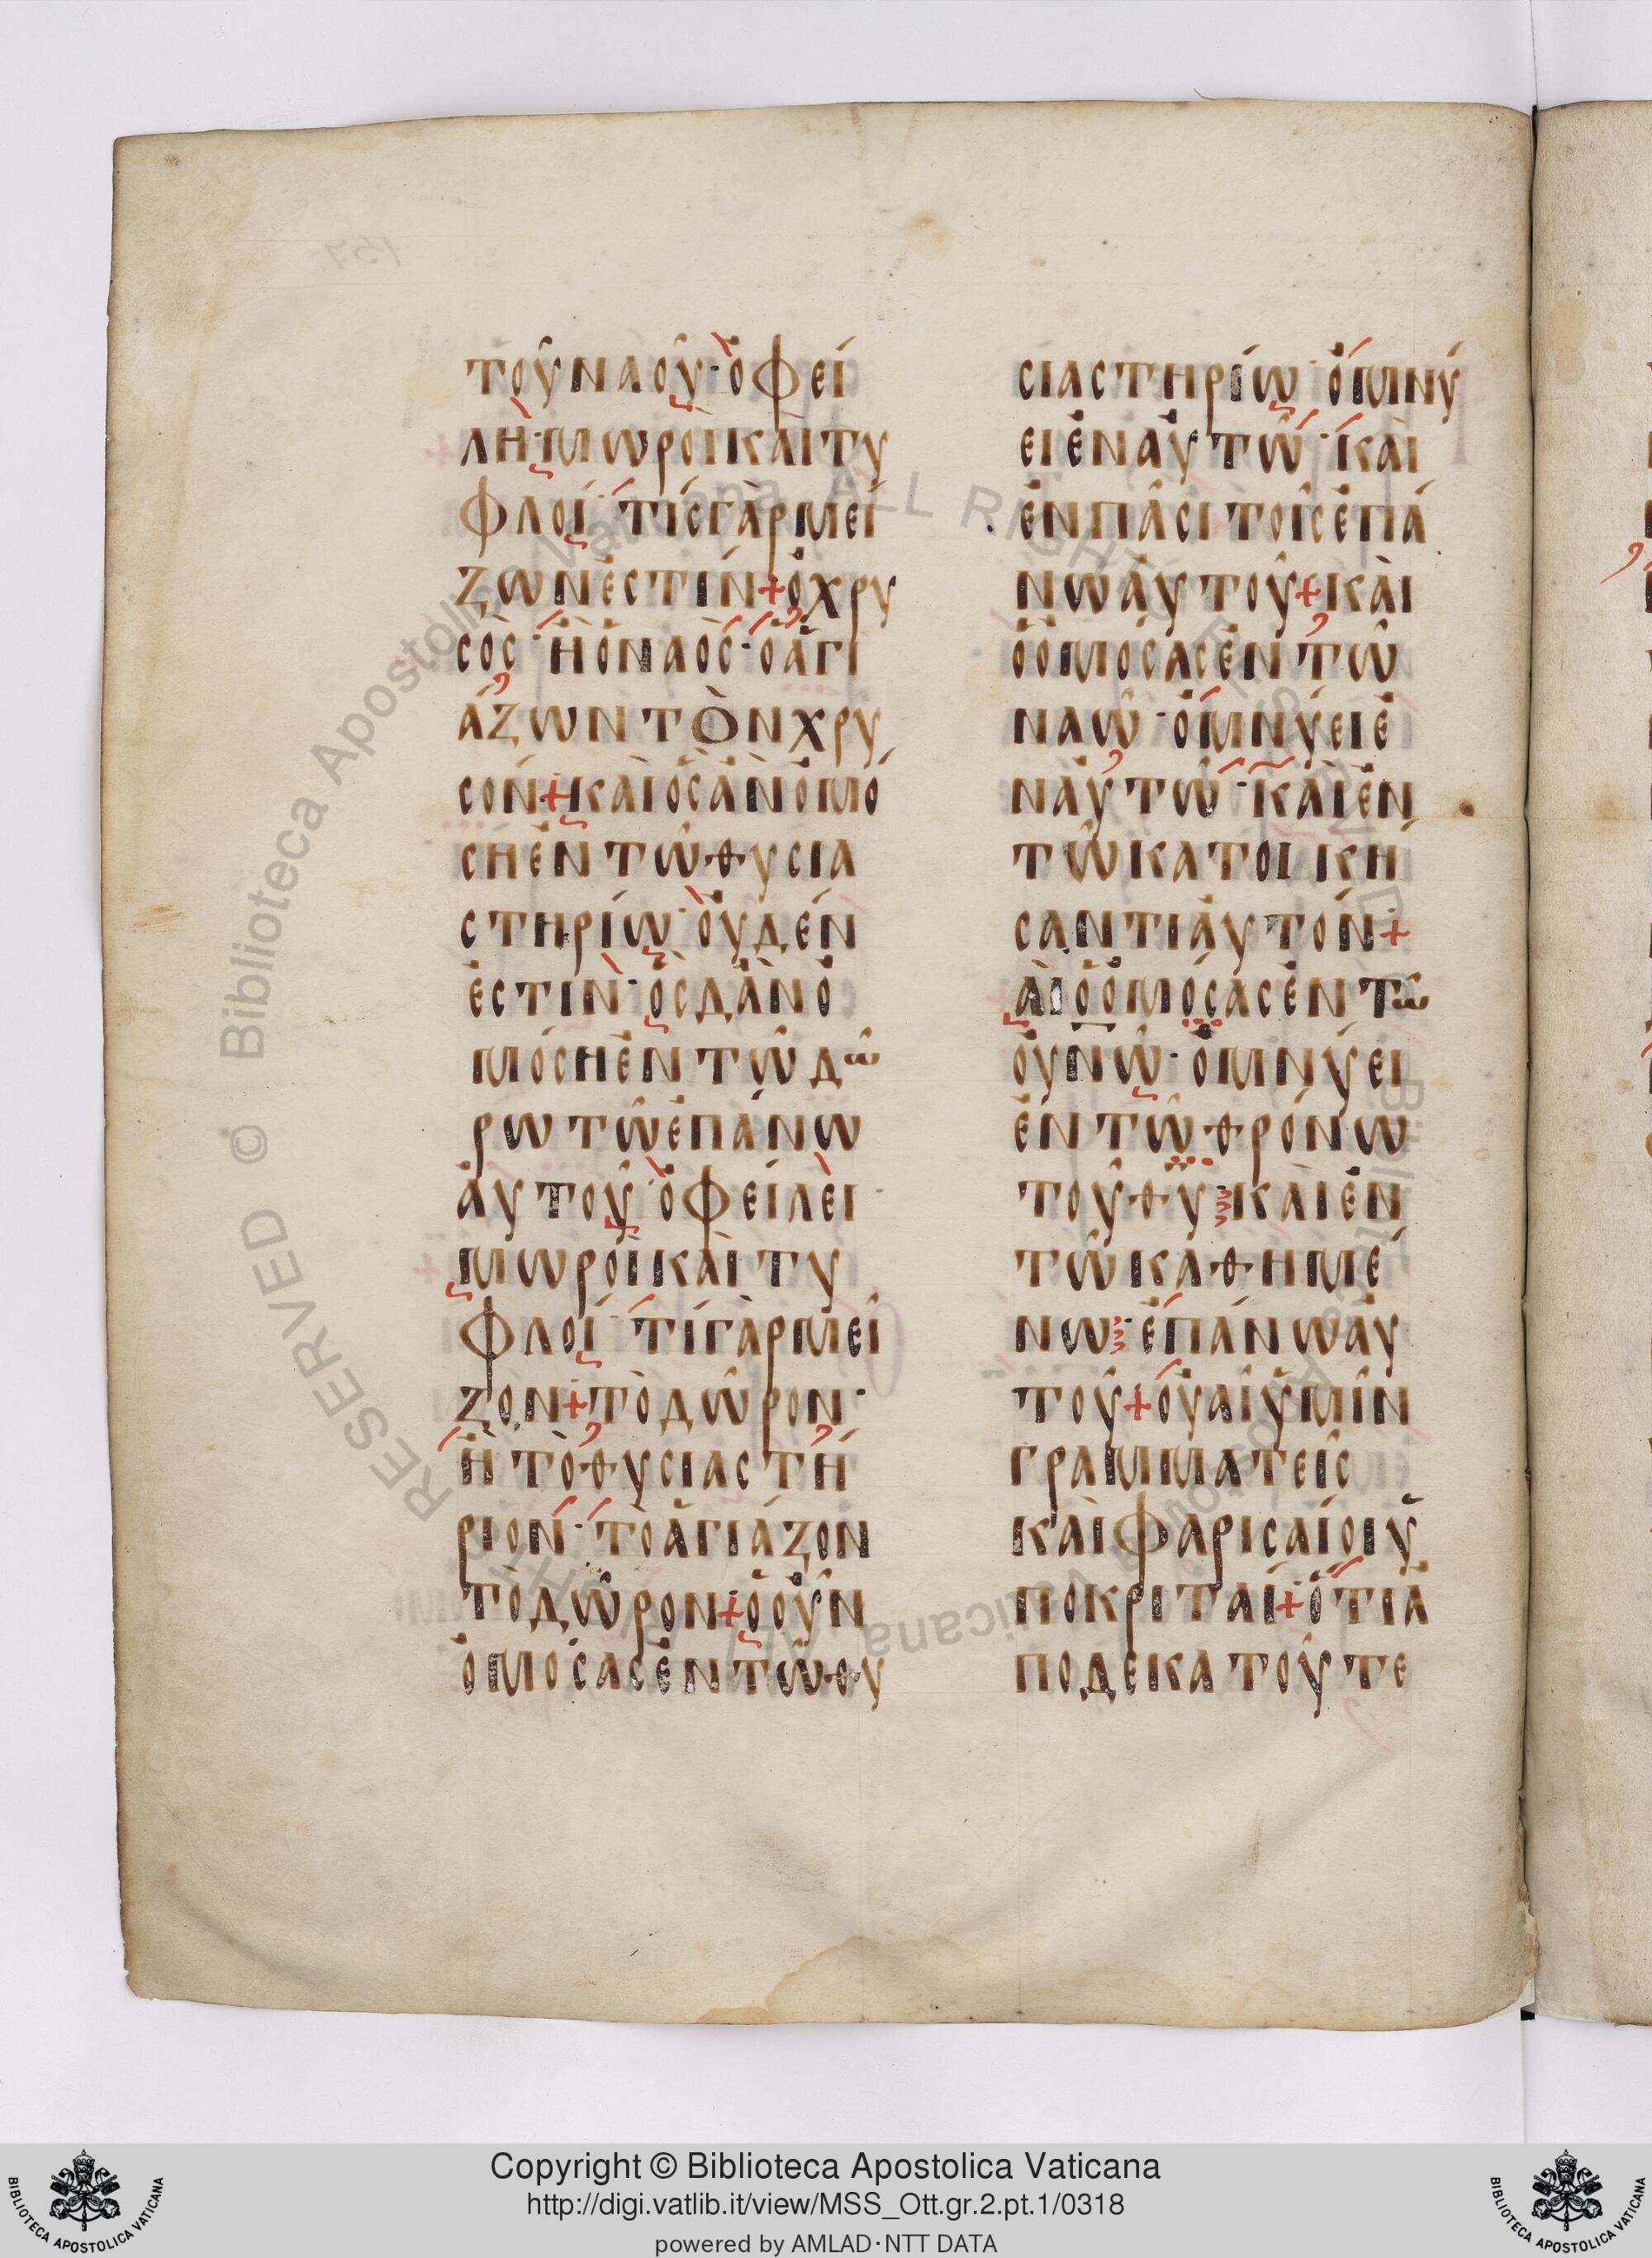 τοῦ ναοῦ· ὀφεί
λη· μωροὶ καὶ τυ
φλοί· τίς γὰρ μεί
ζων ἐστίν + ὁ χρυ
σὸς· ἢ ὁ ναὸς· ὁ ἁγι
άζων τὸν χρυ
σόν + καὶ ὃς ἂν ὀμό
ση ἐν τῶ θυσια
στηρίω· οὐδέν
ἐστιν· ὃς δ' ἂν ὀ
μόση ἐν τῶ δώ
ρω τῶ ἐπάνω
αὐτοῦ· ὀφείλει·
μωροὶ καὶ τυ
φλοί· τί γὰρ μεῖ
ζον + τὸ δῶρον·
ἢ τὸ θυσιαστή
ριον· τὸ ἁγιάζον
τὸ δῶρον + ὁ οὖν
ὀμόσας ἐν τῶ θυ
σιαστηρίω· ὀμνύ
ει ἐν αὐτῶ· καὶ
ἐν πᾶσι τοῖς ἐπά
νω αὐτοῦ + καὶ
ὁ ὀμόσας ἐν τῶ
ναῶ· ὀμνύει ἐ
ν αὐτῶ· καὶ ἐν
τῶ κατοικη
σαντι αὐτόν +
αὶ ὁ ὀμόσας ἐν τῶ
ουνω· ὀμνύει
ἐν τῶ θρόνω
τοῦ θυ καὶ ἐν
τῶ καθημέ
νω· ἐπάνω αὐ
τοῦ + οὐαὶ ὑμῖν
γραμματεῖς
καὶ φαρισαίοι ὑ
ποκριταί + ὅτι ἀ
ποδεκατοῦτε
Copyright © Biblioteca Apostolica Vaticana
http://digi.vatlib.it/view/MSS_Ott.gr.2.pt.1/0318
powered by AMLAD·NTT DATA
BIBLIOTECA APOSTOLICA VATICANA
BIBLIOTECA APOSTOLICA VATICANA